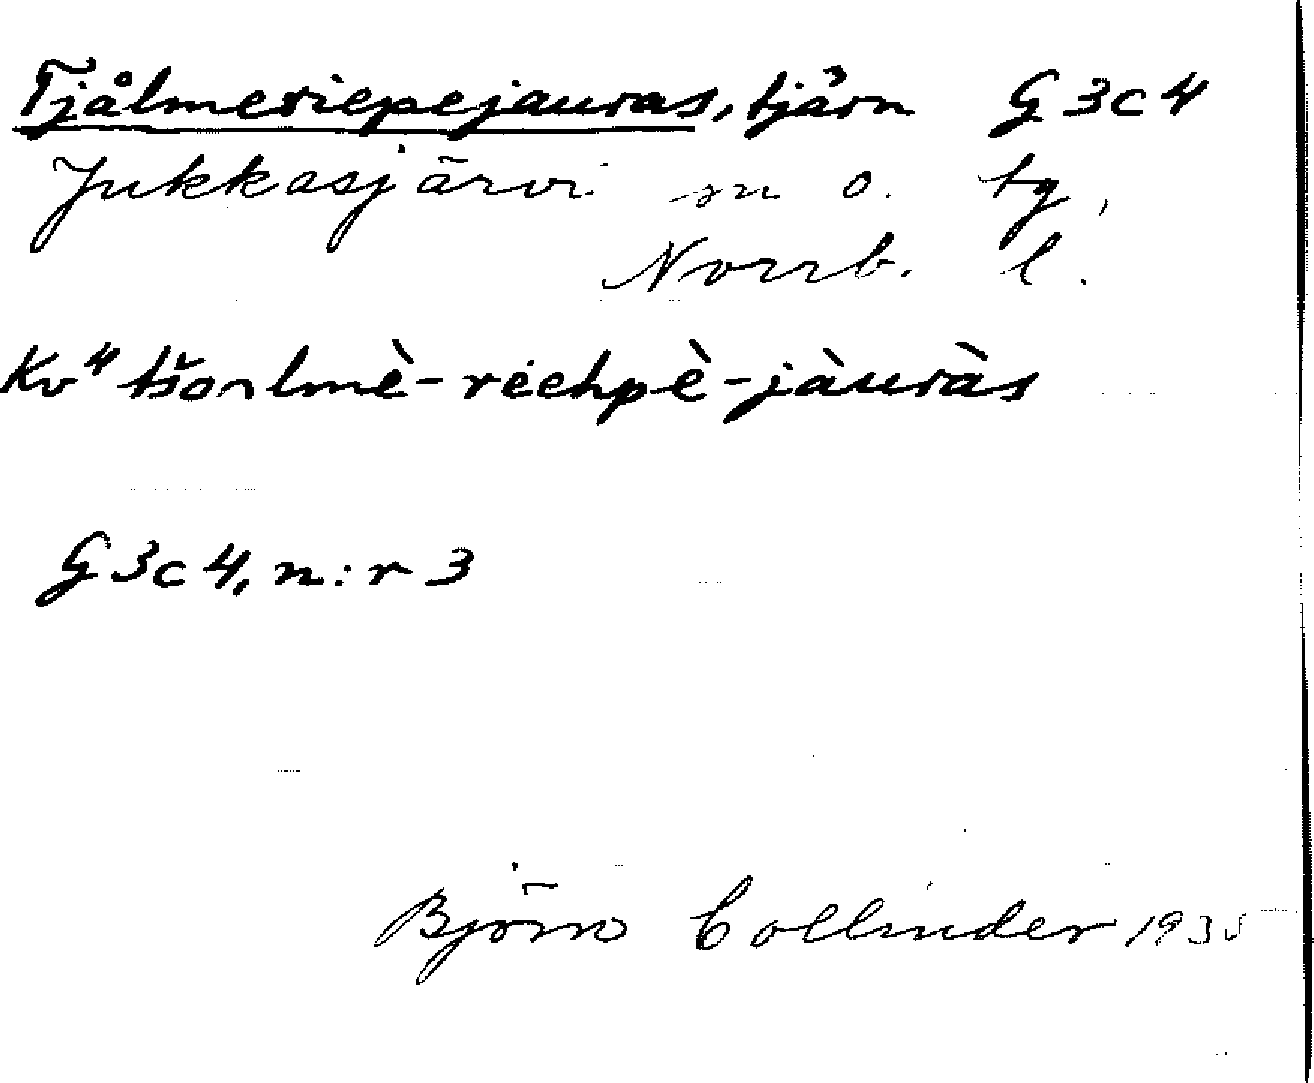 Tjålmeriepejauras, tjärn G 3 c 4
Jukkasjärvi sn o. tg,
Norrb. l.
Kv⁴ tšoɒlmè-réehpè-jàuràs
G 3 c 4, n:r 3
Björn Collinder 1935